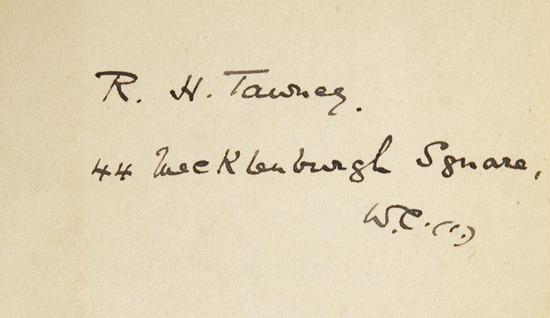 R. H. Tawney.
44 Mecklenburgh Square,
W.C.(1.)